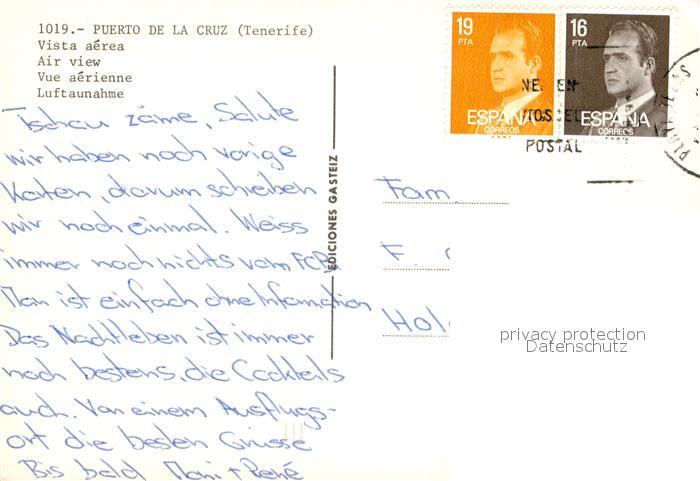 1019.- PUERTO DE LA CRUZ (Tenerife)
Vista aérea
Air view
Vue aérienne
Luftaunahme
19
PTA
ESPAÑA
CORREOS
16
PTA
ESPAÑA
CORREOS
NE EN
POSTAL
Tschau zäme, Salute
wir haben noch vorige
Karten, darum schreiben
wir noch einmal. Weiss
immer noch nichts vom FCB.
Man ist einfach ohne Information
Das Nachtleben ist immer
noch bestens, die Cocktails
auch. Von einem Ausflugs-
ort die besten Grüsse
Bis bald Moni + René
EDICIONES GASTEIZ
Fam.
F.
privacy protection
Datenschutz